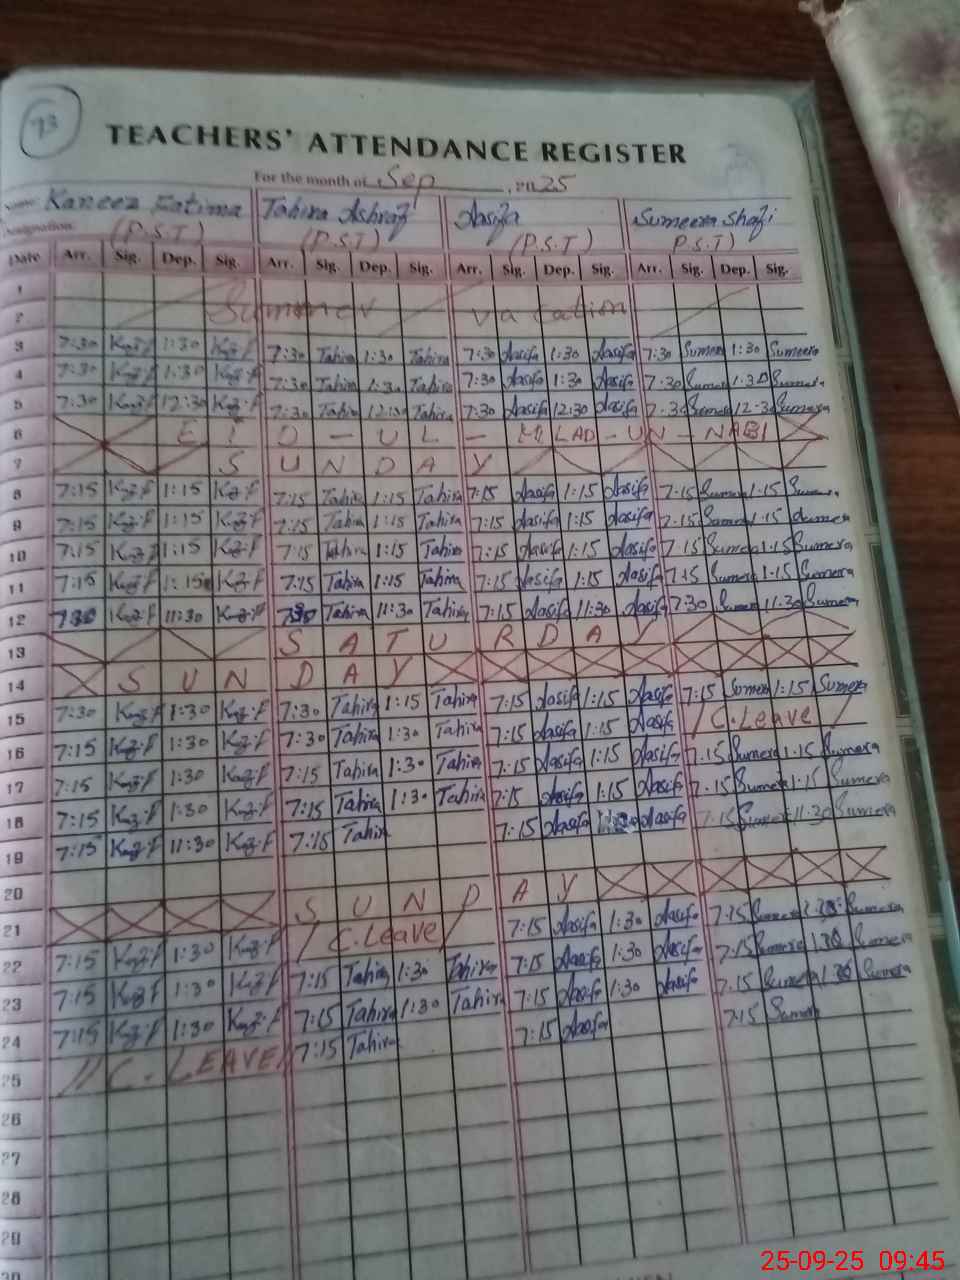 73
TEACHERS' ATTENDANCE REGISTER
For the month of Sep 2025
Name: Kaneez Fatima Tahira Ashraf Aasifa Sumeera Shafi
Designation: (P.S.T) (P.S.T) (P.S.T) P.S.T)
Date Arr. Sig. Dep. Sig. Arr. Sig. Dep. Sig. Arr. Sig. Dep. Sig. Arr. Sig. Dep. Sig.
1
2 Summer vacation
3 7:30 Kaz.f 1:30 Kaz.f 7:30 Tahira 1:30 Tahira 7:30 Aasifa 1:30 Aasifa 7:30 Sumera 1:30 Sumeera
4 7:30 Kaz.f 1:30 Kaz.f 7:30 Tahira 1:30 Tahira 7:30 Aasifa 1:30 Aasifa 7:30 Sumera 1:30 Sumera
5 7:30 Kaz.f 12:30 Kaz.f 7:30 Tahira 12:30 Tahira 7:30 Aasifa 12:30 Aasifa 7:30 Sumera 12:30 Sumera
6 EID - UL - MILAD - UN - NABI
7 SUNDAY
8 7:15 Kaz.f 1:15 Kaz.f 7:15 Tahira 1:15 Tahira 7:15 Aasifa 1:15 Aasifa 7:15 Sumera 1:15 Sumera
9 7:15 Kaz.f 1:15 Kaz.f 7:15 Tahira 1:15 Tahira 7:15 Aasifa 1:15 Aasifa 7:15 Sumera 1:15 Sumera
10 7:15 Kaz.f 1:15 Kaz.f 7:15 Tahira 1:15 Tahira 7:15 Aasifa 1:15 Aasifa 7:15 Sumera 1:15 Sumera
11 7:15 Kaz.f 1:15 Kaz.f 7:15 Tahira 1:15 Tahira 7:15 Aasifa 1:15 Aasifa 7:15 Sumera 1:15 Sumera
12 7:30 Kaz.f 11:30 Kaz.f 7:30 Tahira 11:30 Tahira 7:15 Aasifa 11:30 Aasifa 7:30 Sumera 11:30 Sumera
13 SATURDAY
14 SUNDAY
15 7:30 Kaz.f 1:30 Kaz.f 7:30 Tahira 1:15 Tahira 7:15 Aasifa 1:15 Aasifa 7:15 Sumera 1:15 Sumera
16 7:15 Kaz.f 1:30 Kaz.f 7:30 Tahira 1:30 Tahira 7:15 Aasifa 1:15 Aasifa / C.Leave /
17 7:15 Kaz.f 1:30 Kaz.f 7:15 Tahira 1:30 Tahira 7:15 Aasifa 1:15 Aasifa 7:15 Sumera 1:15 Sumera
18 7:15 Kaz.f 1:30 Kaz.f 7:15 Tahira 1:30 Tahira 7:15 Aasifa 1:15 Aasifa 7:15 Sumera 1:15 Sumera
19 7:15 Kaz.f 11:30 Kaz.f 7:15 Tahira 7:15 Aasifa Aasifa 7:15 Sumera 11:30 Sumera
20
21 SUNDAY
22 7:15 Kaz.f 1:30 Kaz.f / C.Leave / 7:15 Aasifa 1:30 Aasifa 7:15 Sumera Sumera
23 7:15 Kaz.f 1:30 Kaz.f 7:15 Tahira 1:30 Tahira 7:15 Aasifa 1:30 Aasifa 7:15 Sumera 1:30 Sumera
24 7:15 Kaz.f 1:30 Kaz.f 7:15 Tahira 1:30 Tahira 7:15 Aasifa 1:30 Aasifa 7:15 Sumera 1:30 Sumera
25 // C. LEAVE // 7:15 Tahira 7:15 Aasifa 7:15 Sumera
26
27
28
29
30
25-09-25 09:45